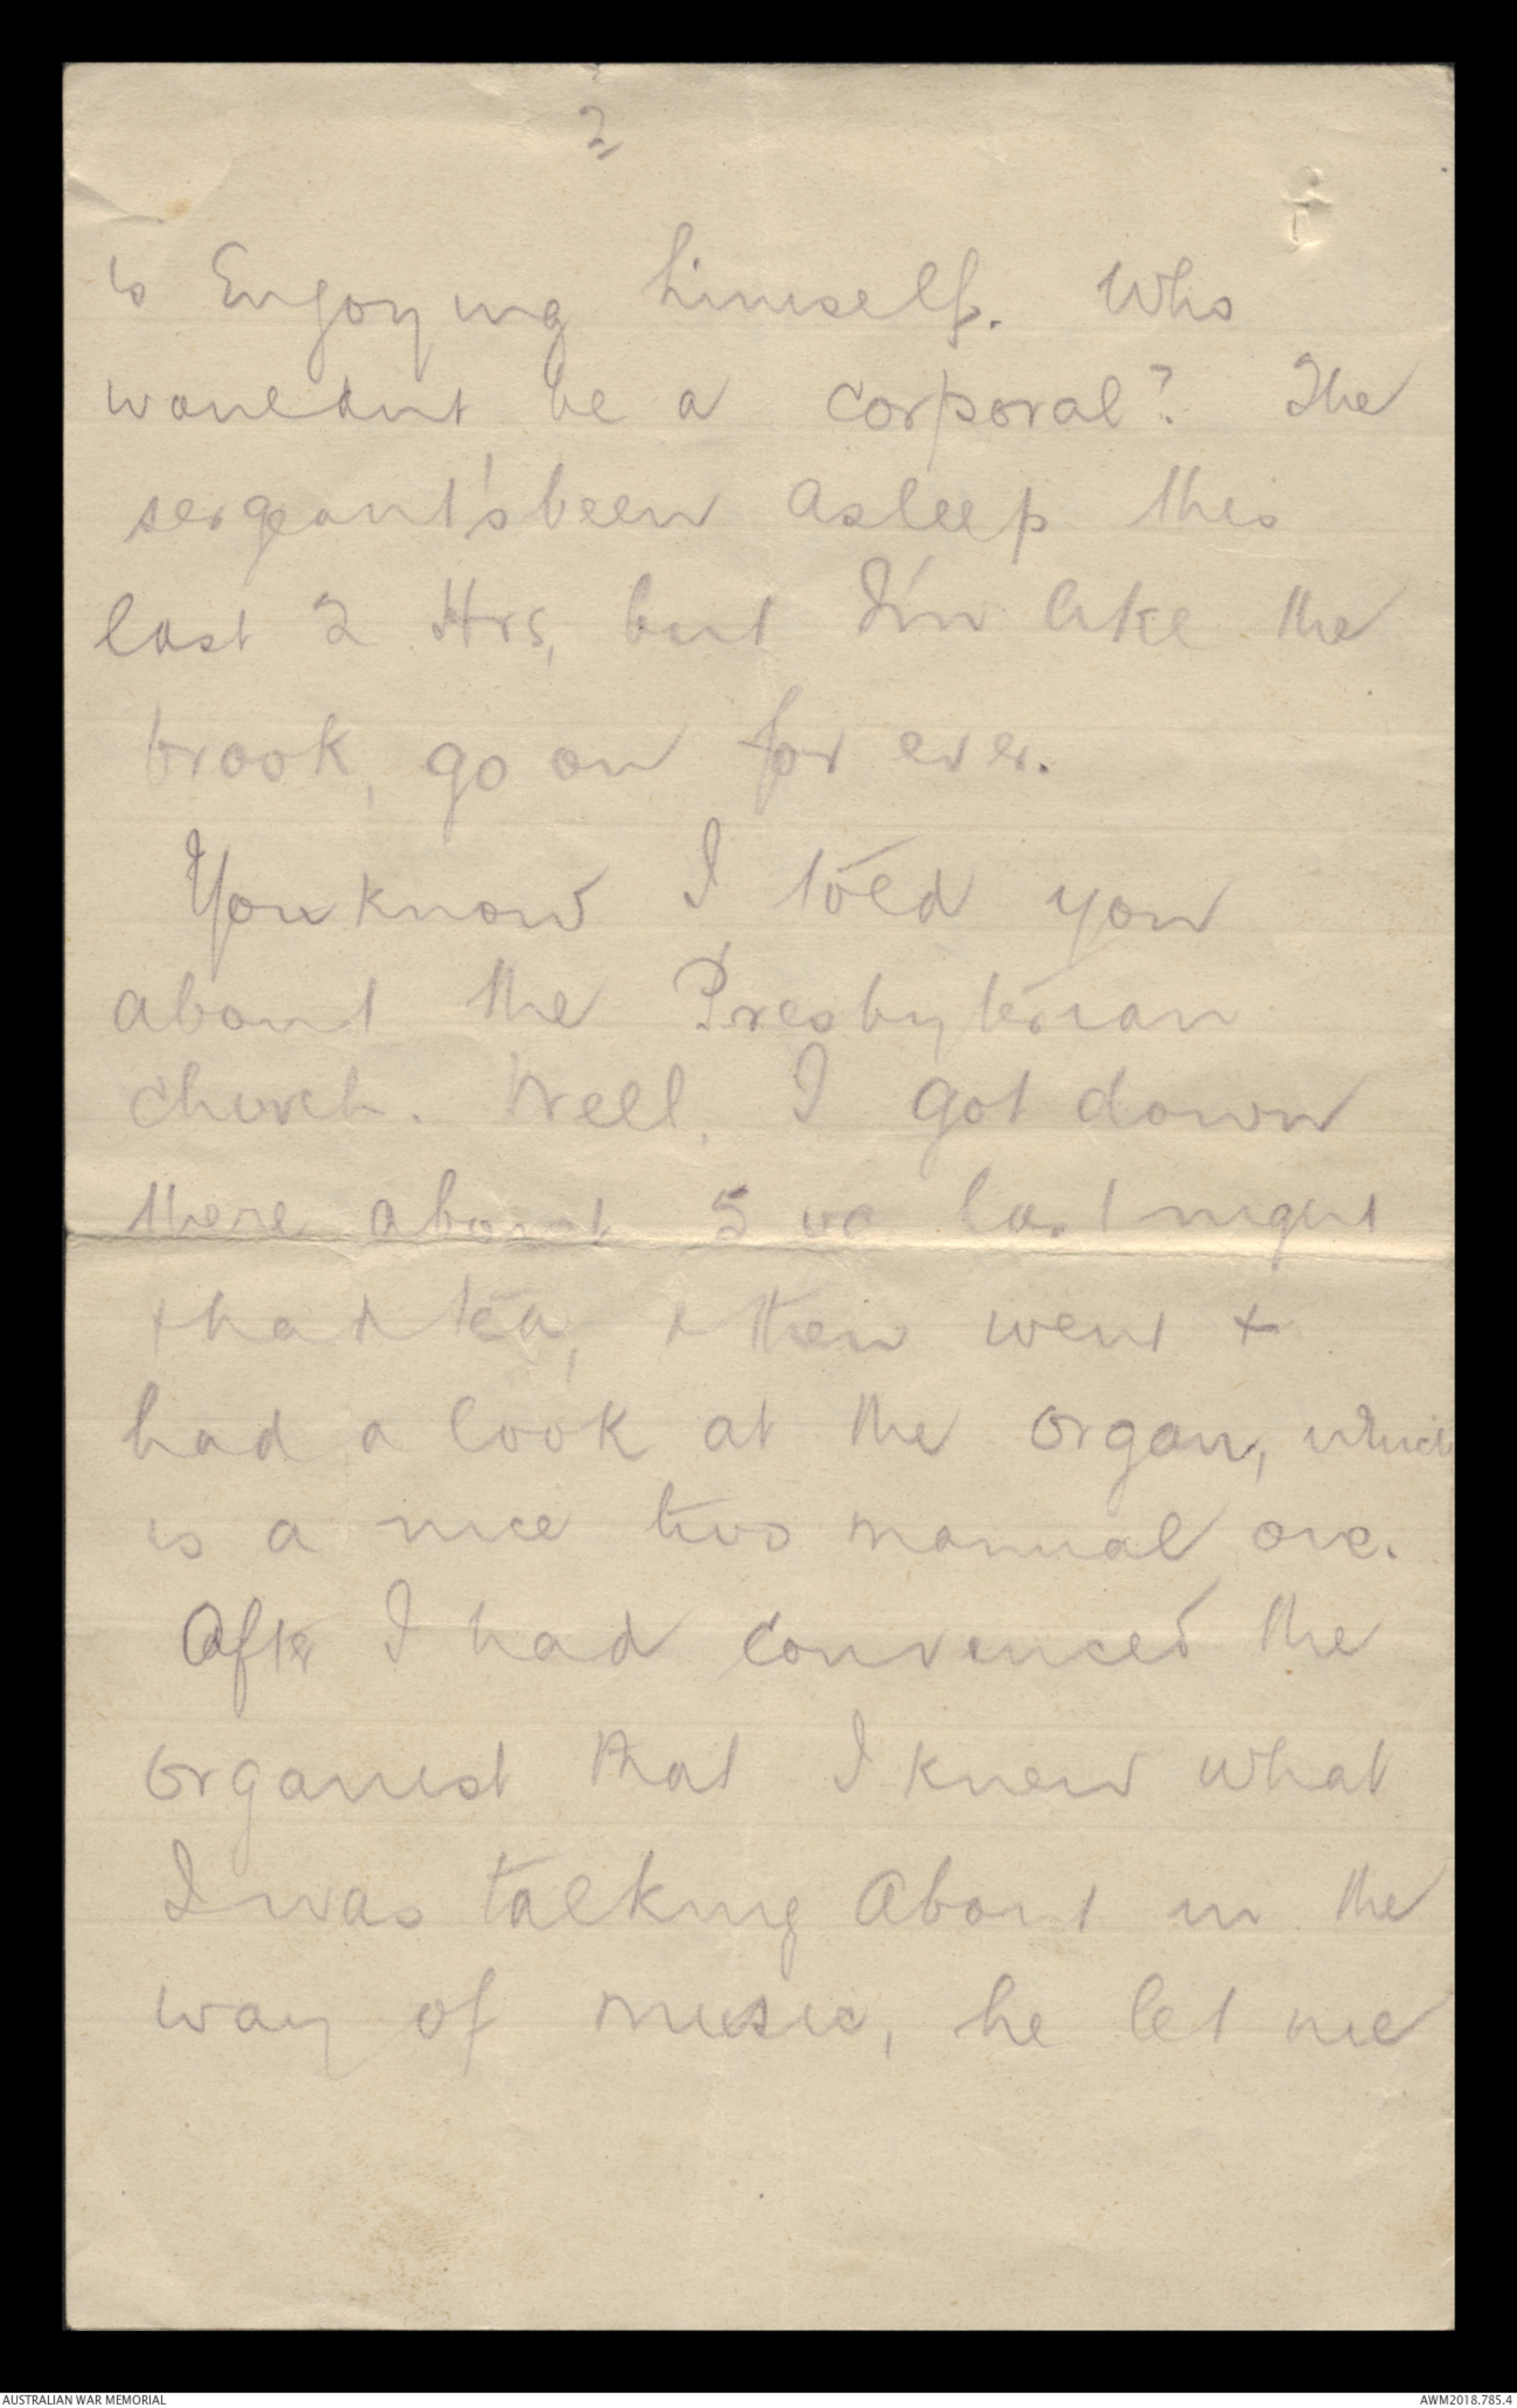 2
is Enjoying himself. Who
wouldnt be a corporal? The
sergeant's been asleep this
last 2 Hrs, but I'm like the
brook, go on for ever.
You know I told you
about the Presbyterian
church. Well, I got down
there about 5 last night
+ had tea, + then went +
had a look at the organ, which
is a nice two manual one.
After I had convinced the
organist that I knew what
I was talking about in the
way of music, he let me
AUSTRALIAN WAR MEMORIAL
AWM2018.785.4